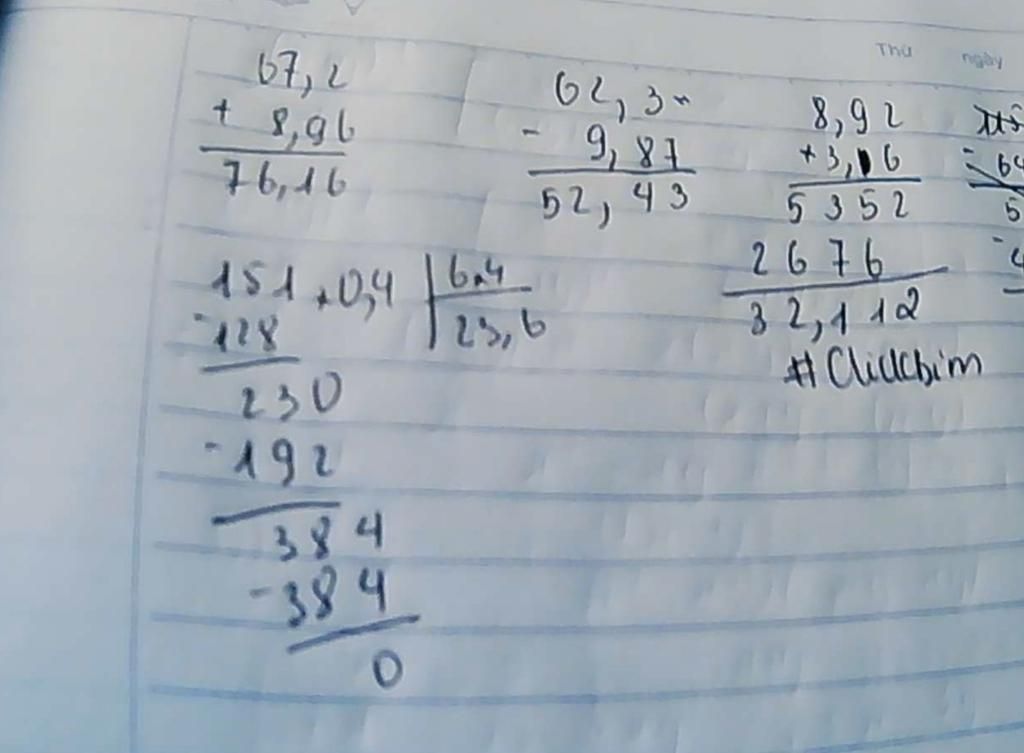 Thứ ngày
67,2
+ 8,96
76,16
62,3
- 9,87
52,43
8,92
+ 3,6
5352
2676
32,112
151,0,4 6,4
-128 23,6
230
-192
384
-384
0